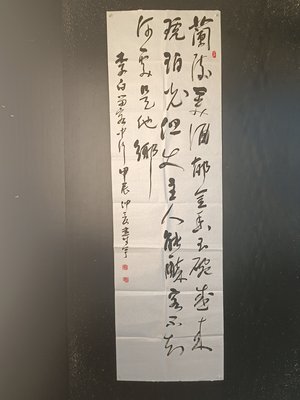 蘭陵美酒郁金香玉碗盛来
琥珀光但使主人能醉客不知
何處是他鄉
李白客中行甲辰仲